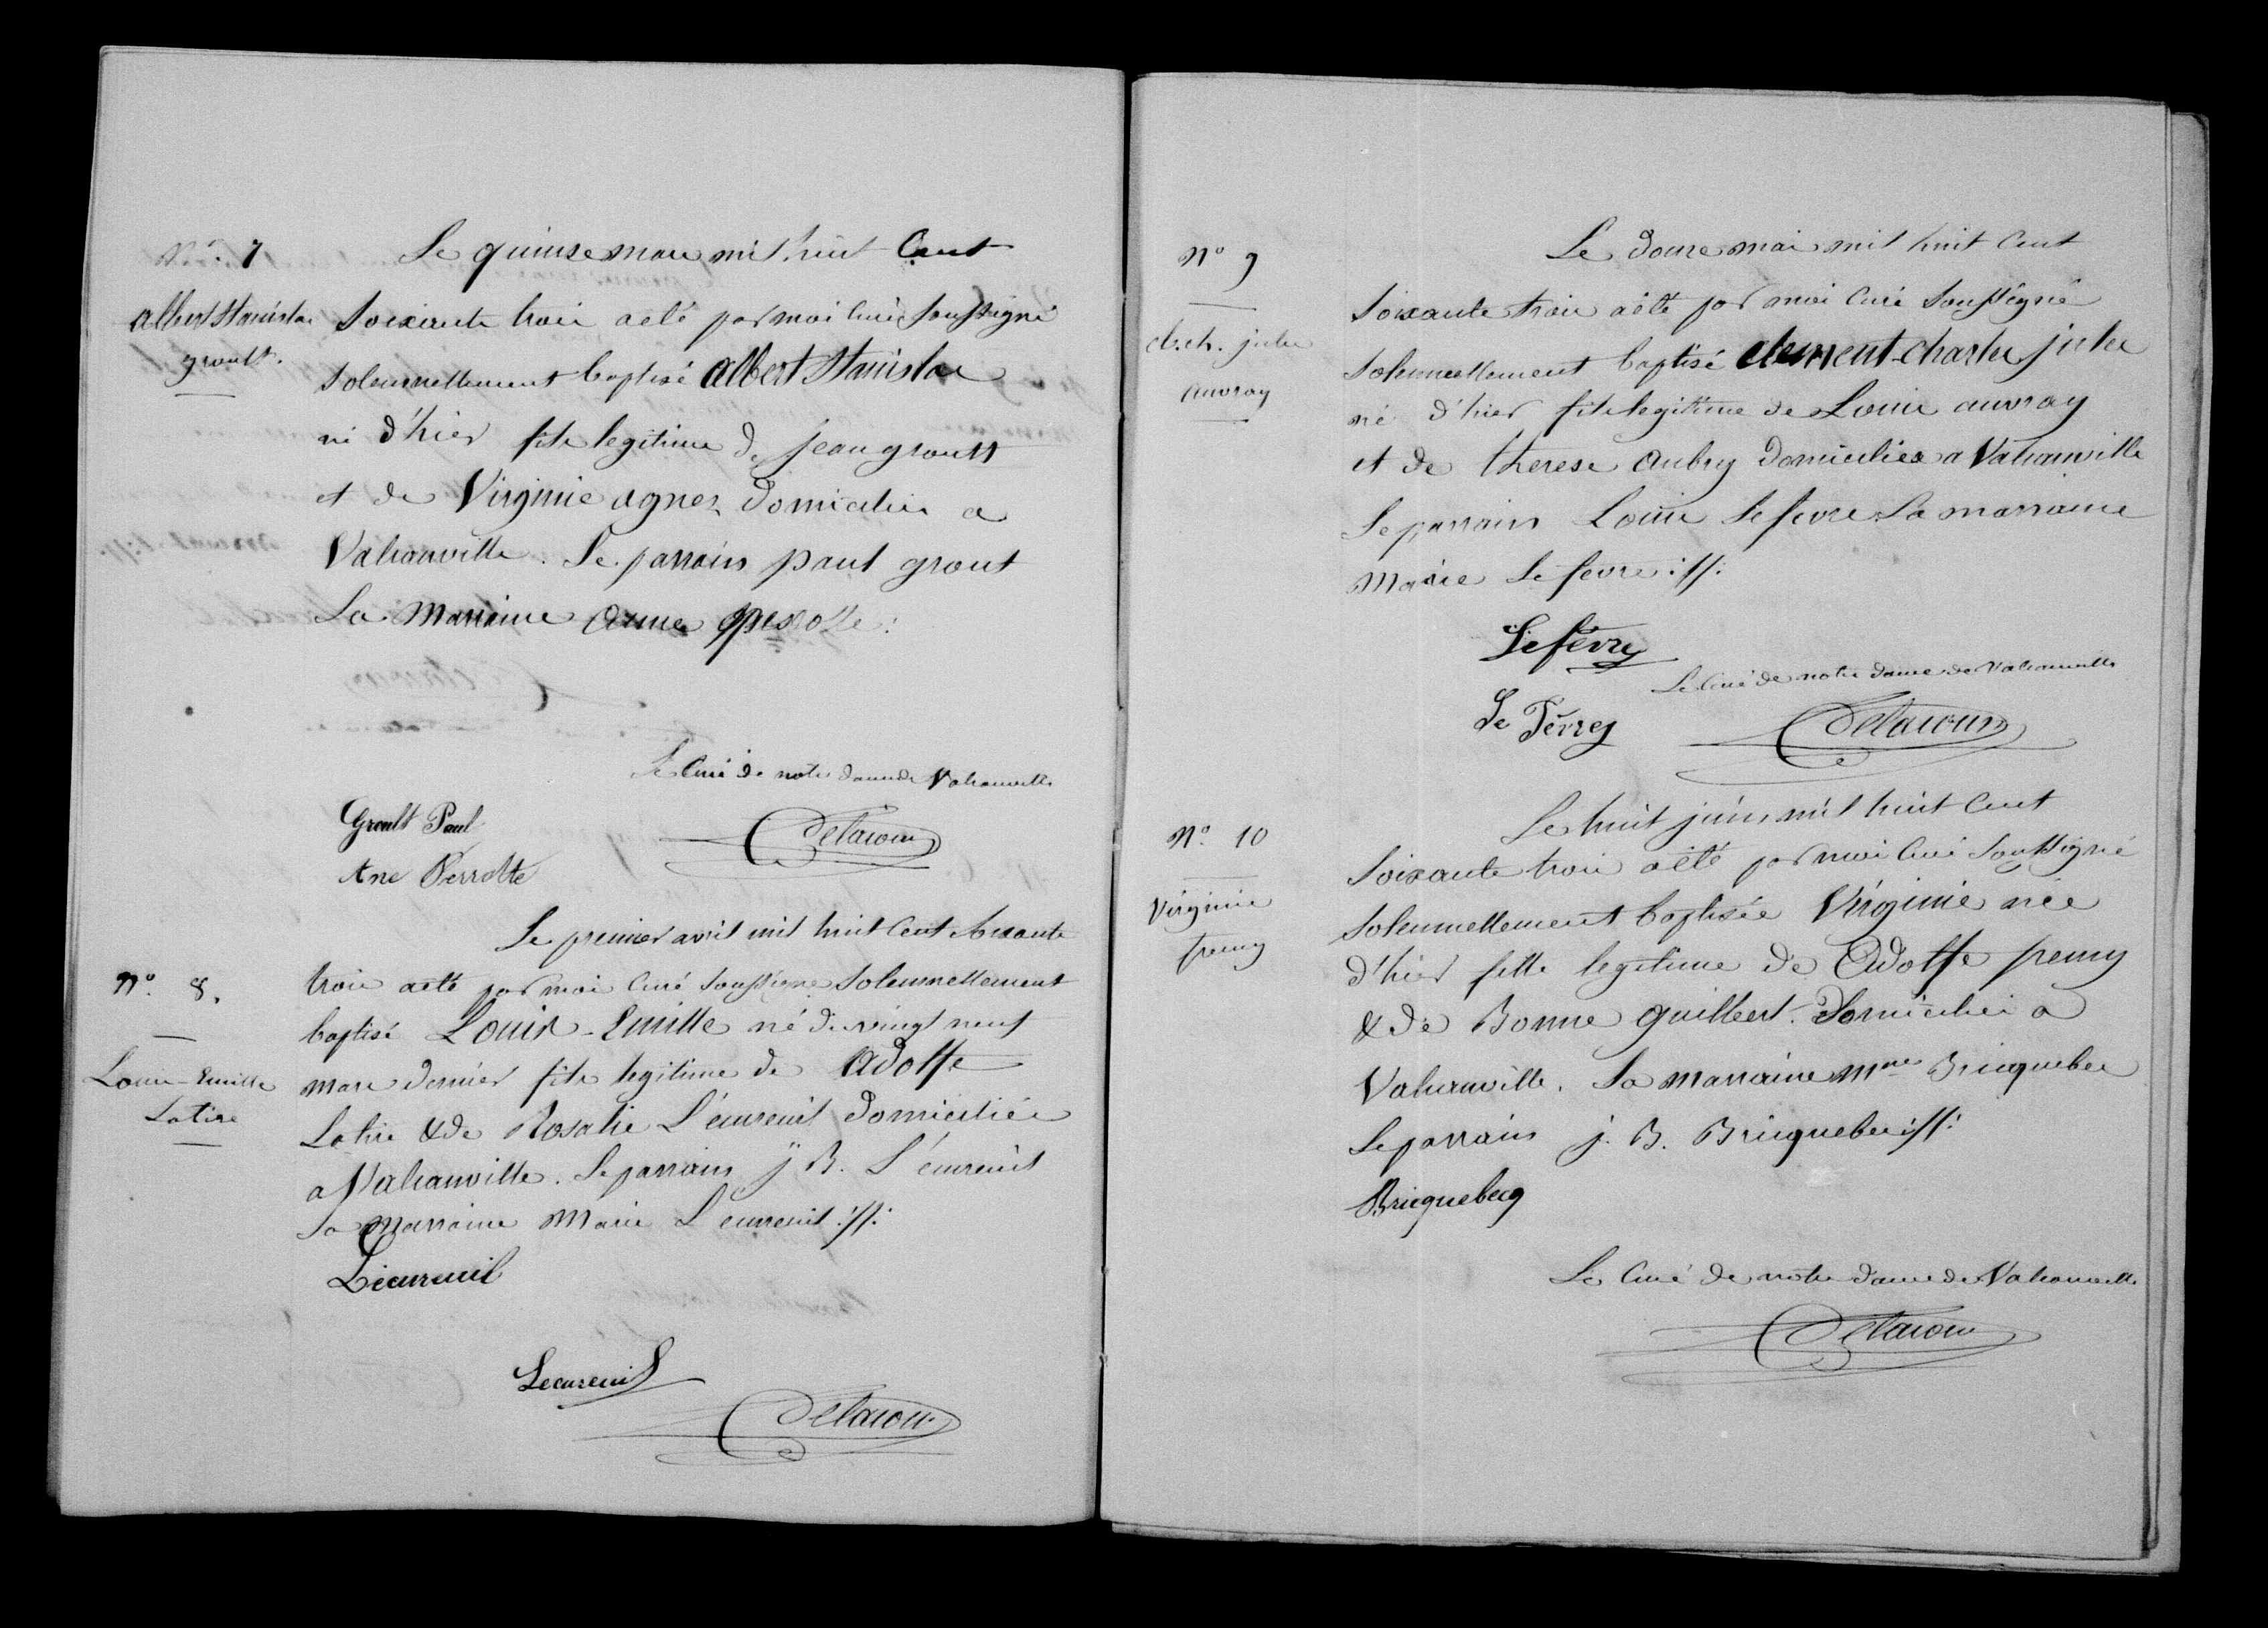 N°. 7
Albert Stanislas
groult.
Le quinse mars mil huit Cent
Soixante trois a été par moi Curé Soussigné
solennellement baptisé Albert Stanislas
né d'hier fils legitime de jean groult
et de Virginie agnes domiciliés a
Valcanville. Le parrain paul grout
La Marraine anne perrotte:
Le Curé de notre dame de Valcanville
Groult Paul
Delacour
Ane Perrotte
N°. 8.
Louis-Emille
Latire
Le premier avril mil huit Cent soixante
trois a été par moi Curé Soussigné Solennellement
baptisé Louis-Emille né du vingt neuf
mars dernier fils legitime de Adolfe
Latire & de Rosalie L'écureuil domiciliés
a Valcanville. Le parrain j B. L'écureuil
La marraine Marie L'écureuil :ff:
Lécureuil
Lecureuil
Delacour
N° 9
cl. ch. jules
auvray
Le douze mai mil huit Cent
Soixante trois a été par moi Curé Soussigné
Solennellement baptisé Clement-charles jules
né d'hier fils legitime de Louis auvray
et de therese aubry domiciliés a Valcanville
Le parrain Louis Lefevre La marraine
Marie Lefevre :ff:
Lefévre
Le Curé de notre dame de Valcanville
Le
Delacour
N°. 10
Virginie
fremy
Le huit juin mil huit Cent
Soixante trois a été par moi Curé Soussigné
Solennellement baptisée Virginie née
d'hier fille legitime de Adolfe fremy
& de Bonne guilbert. Domiciliés a
Valcanville. La marraine Mme Bricquebec
Le parrain j. B. Bricquebec :ff:
Bricquebecq
Le Curé de notre dame de Valcanville
Delacour